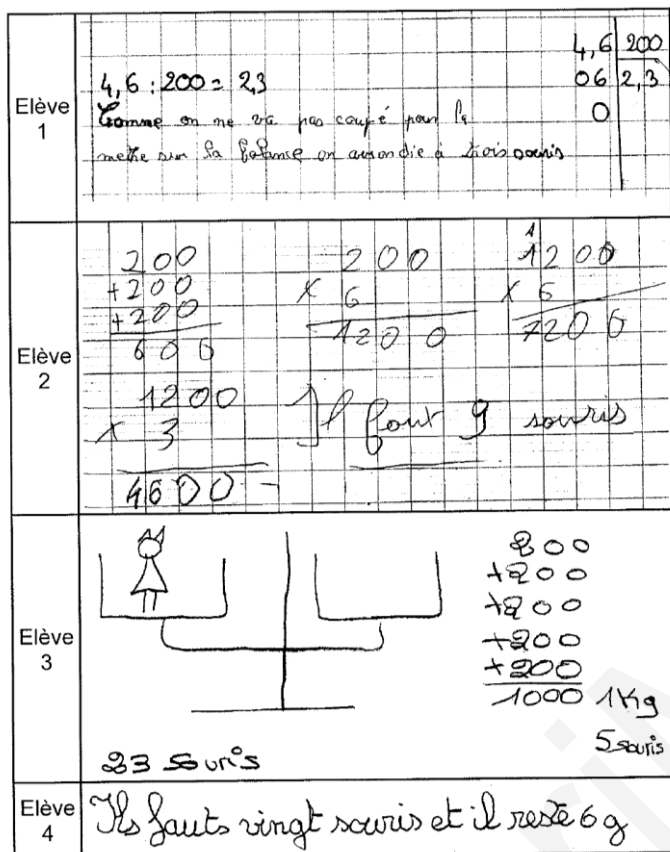 Elève 1
4,6 : 200 = 2,3
Comme on ne va pas coupé pour la
metre sur la balance on arrondie à trois souris
4,6 200
06 2,3
0
Elève 2
200
+200
+200
600
200
x 6
1200
1
1200
x 6
7200
1200
x 3
4600
Il faut 9 souris
Elève 3
23 souris
200
+200
+200
+200
+200
1000 1Kg
5 souris
Elève 4
Ils fauts vingt souris et il reste 6 g